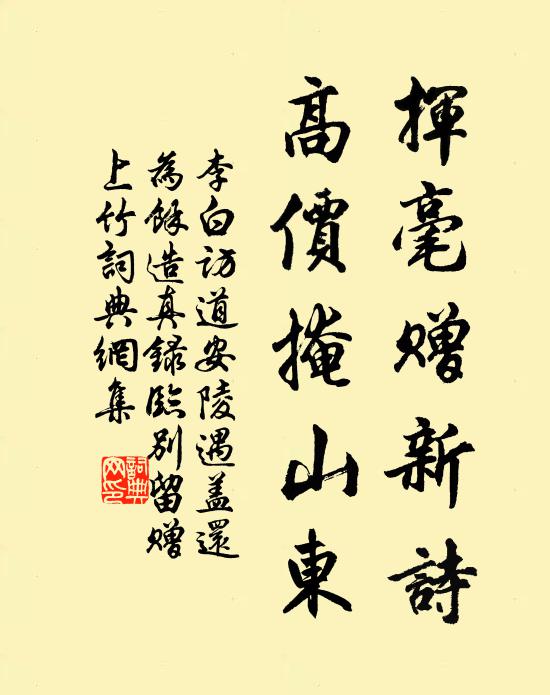 揮毫贈新詩
高價掩山東
李白訪道安陵遇蓋還
為餘造真錄臨別留贈
上竹詞典網集
詞典
网印